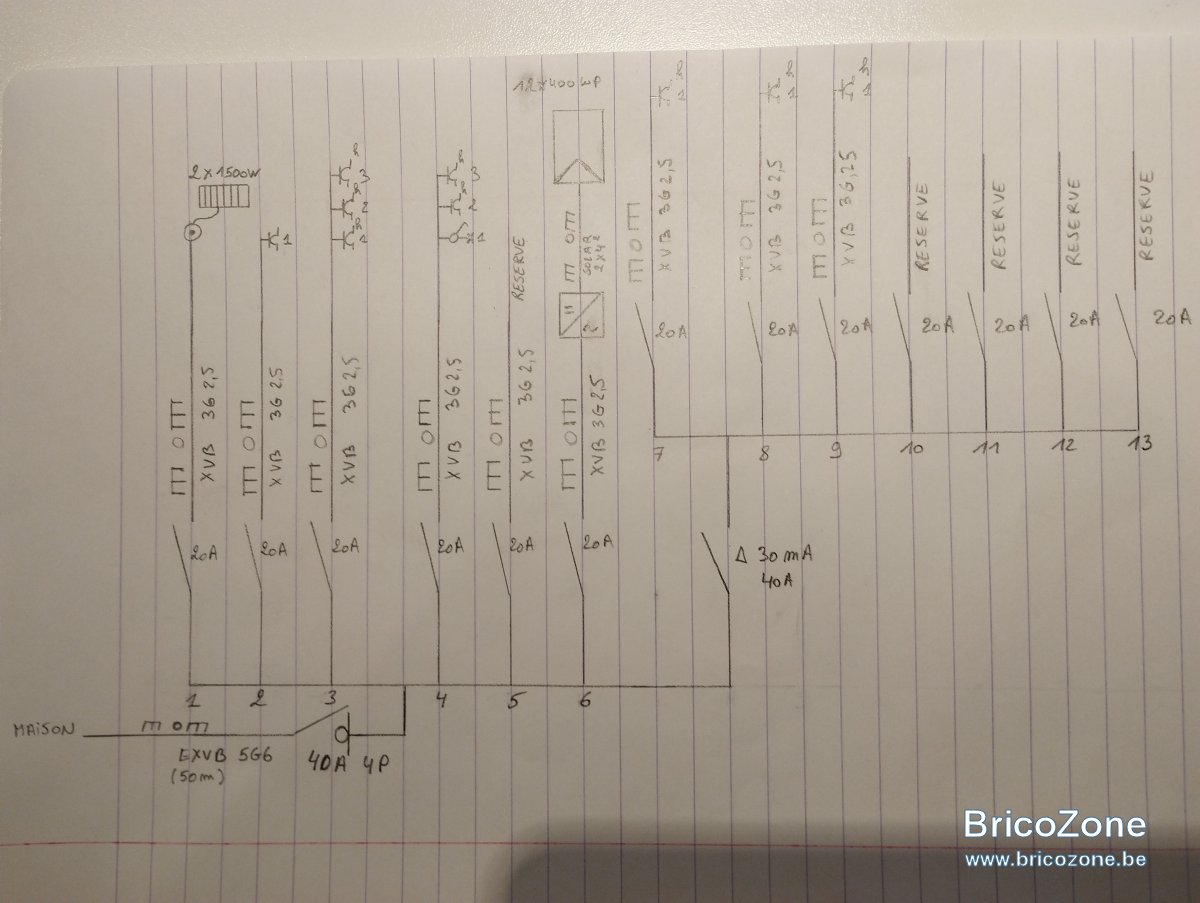 12x400 WP
2 x 1500W
3
2
1
1
3
2
1
RESERVE
SOLAR
2x4²
XVB 3G2,5
XVB 3G2,5
XVB 3G2,5
XVB 3G2,5
XVB 3G2,5
XVB 3G2,5
20A
20A
20A
20A
20A
20A
XVB 3G2,5
XVB 3G2,5
XVB 3G,25
RESERVE
RESERVE
RESERVE
RESERVE
20A
20A
20A
20A
20A
20A
20A
7
8
9
10
11
12
13
Δ 30mA
40A
1
2
3
4
5
6
MAISON
EXVB 5G6
(50m)
40A 4P
BricoZone
www.bricozone.be